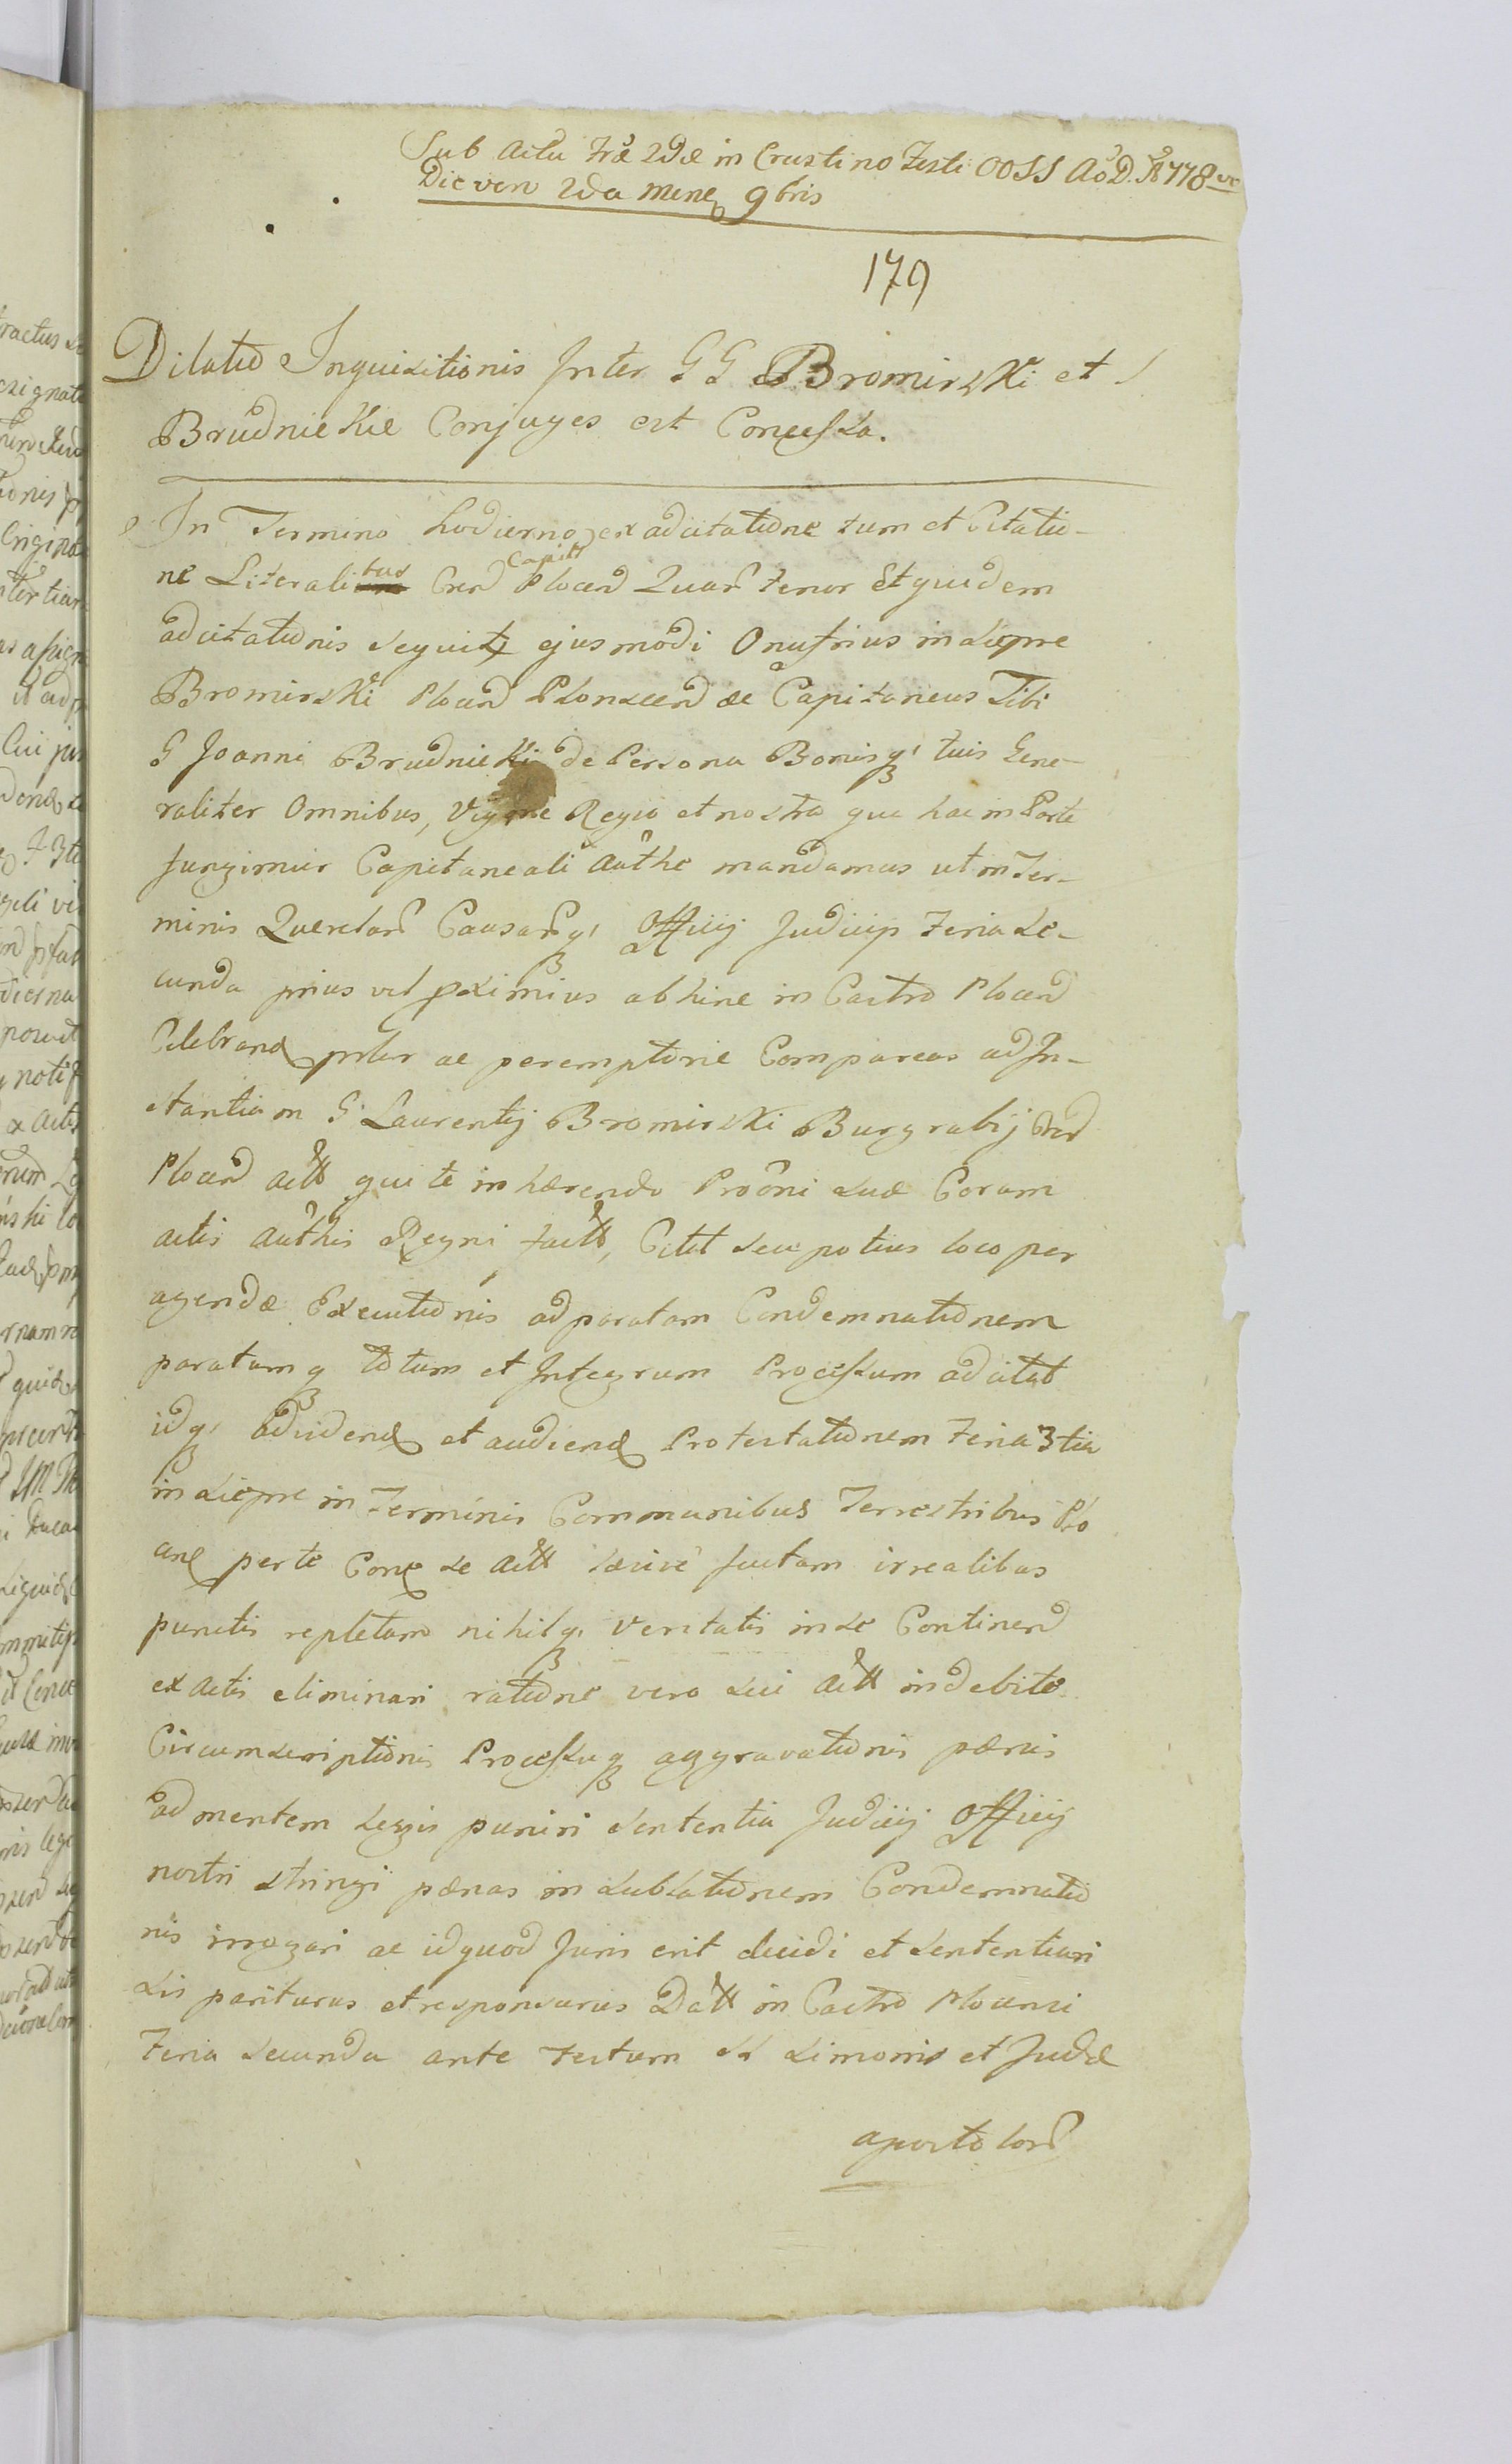 Sub Actu Fræ 2dæ in Crastino Festi OOSS Ao D. 1778vo
Die vero 2da Mens 9bris
179
Dilatio Inquisitionis Inter GG Bromirski et
Brudnickie Conjuges est Concessa.
In Termino hodierno ex adcitatione tum et Citatio-
ne Literalibus Cren Capitt Plocen Quar tenor Et quidem
adcitationis sequit ejusmodi Onufrius in Siepre
Bromirski Plocen Plonscen &c Capitaneus Tibi
G Joanni Brudnicki de Persona Bonisq tuis Gene-
raliter Omnibus, Vigore Regio et nostra qua hac in Parte
fungimur Capitaneali Autthe mandamus ut in Ter-
minis Querelar Causarq Officij Judicijs Feria Se-
cunda prius vel pximius abhinc in Castro Plocen
Celebrand pnlr ac peremptorie Compareas ad In-
stantiam G Laurentij Bromirski Burgrabij Cren
Plocen Actt qui te inhærendo Prooni suæ Coram
actis Autthis Regni factt, Citat seu potius loco per
agendæ Executionis ad paratam Condemnationem
paratumq totum et Integrum Processum adcitat
idq advidend et audiend Protestationem Feria 3tia
in Siepre in Terminis Communibus Terrestribus Plo
cen per te Con se Actt sæive factam irrealibus
punctis repletam nihilq Veritatis in se Continen
ex Actis eliminari ratione vero sui Actt indebite
Circumscriptionis Processuq aggravationis pænis
ad mentem Legis puniri Sententia Judicij Officij
nostri stringi pænas in sublationem Condemnatio
nis irrogari ac id quod Juris erit decidi et Sententiari
Sis pariturus et responsurus Datt in Castro Plocensi
Feria Secunda ante Festum SS Simonis et Judæ
apostolor